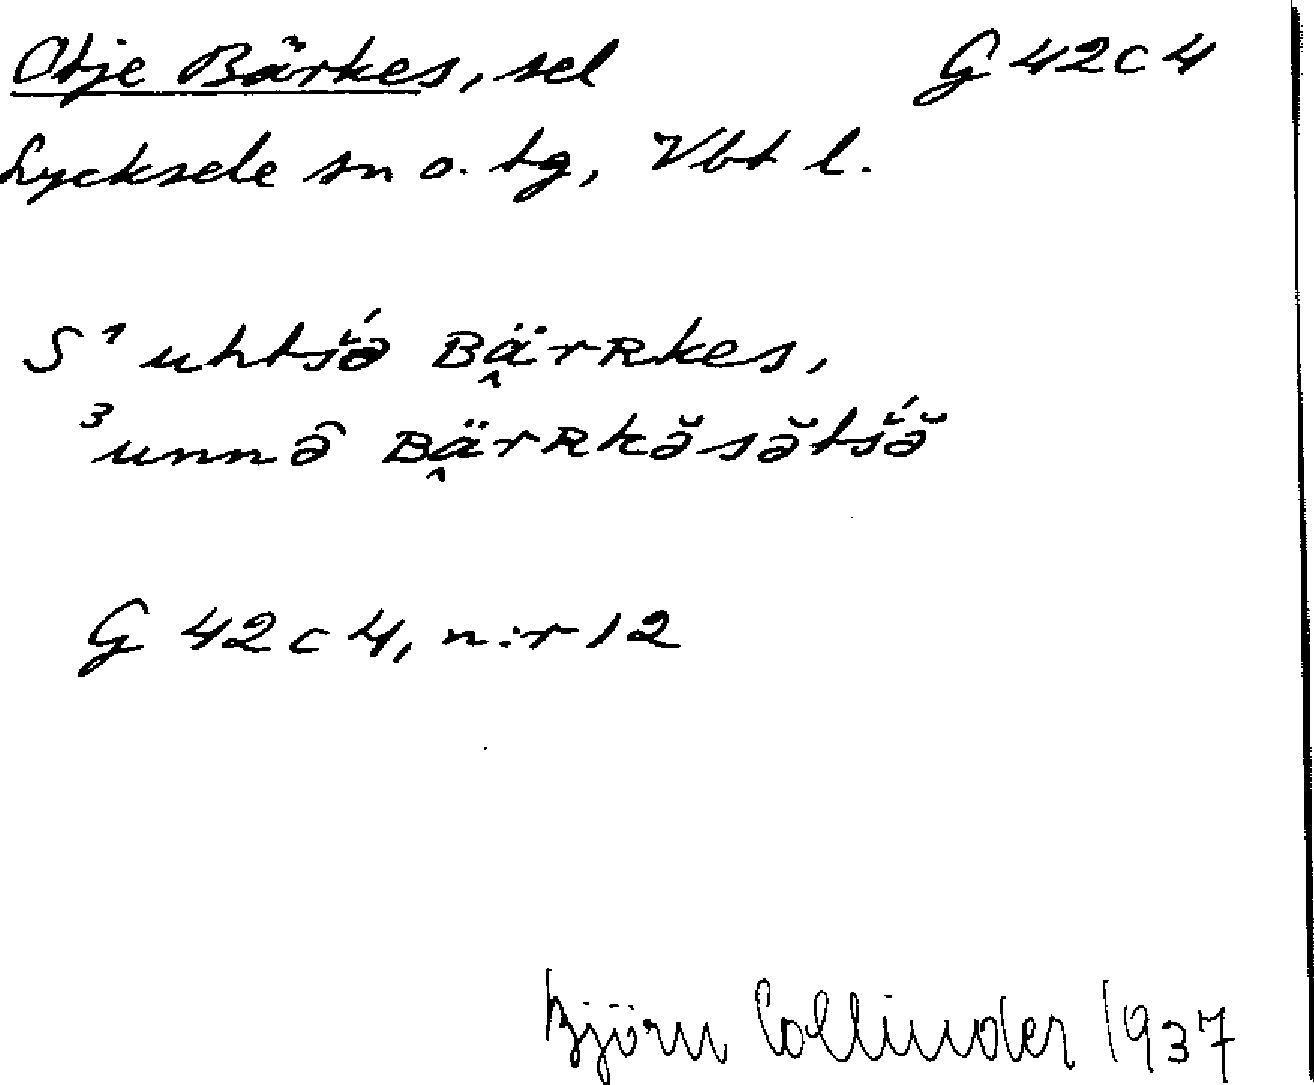 Otje Bärkes, sel G 42 c 4
Lycksele sn o. tg, Vbt l.
S ¹ uhtś̌ə Bä̭rRkes,
³ unnə̂ Bä̭rRkə̆sə̆tś̌ə̆
G 42 c 4, n:r 12
Björn Collinder 1937